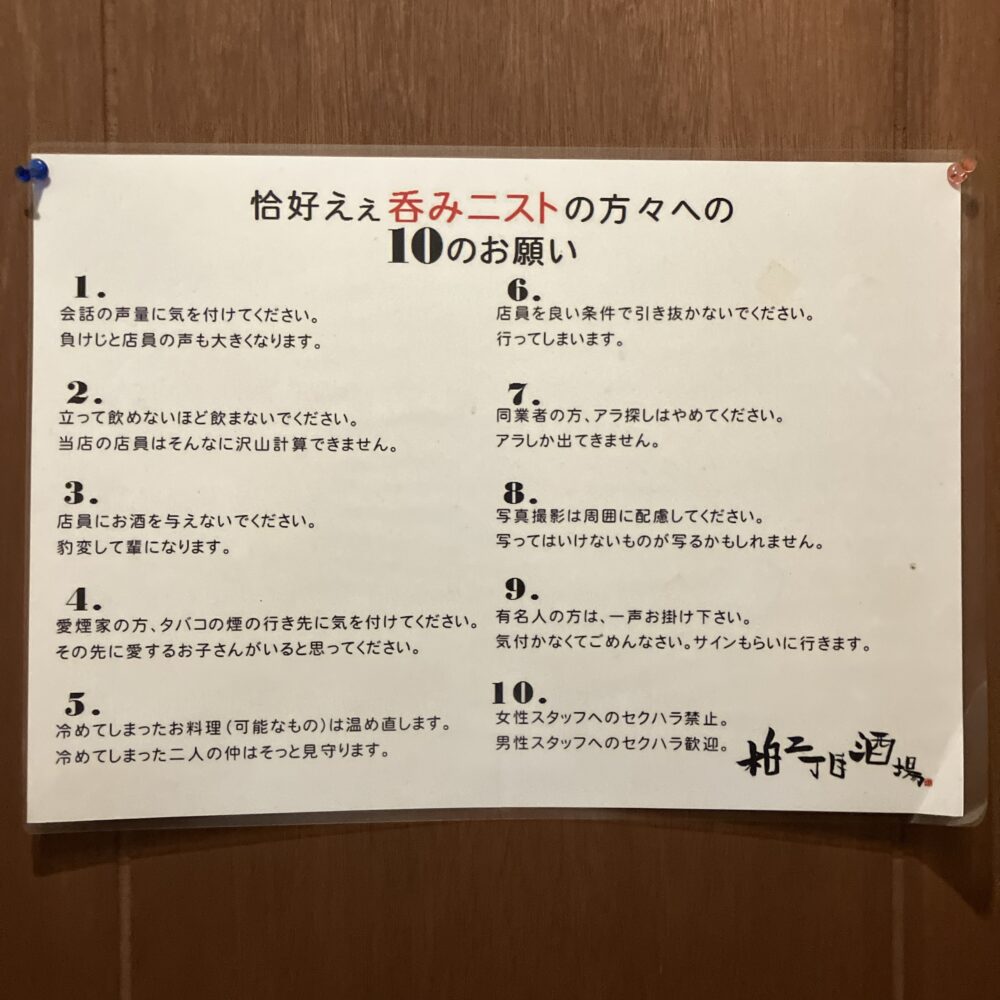 恰好えぇ呑みニストの方々への
10のお願い
1.
会話の声量に気を付けてください。
負けじと店員の声も大きくなります。
2.
立って飲めないほど飲まないでください。
当店の店員はそんなに沢山計算できません。
3.
店員にお酒を与えないでください。
豹変して輩になります。
4.
愛煙家の方、タバコの煙の行き先に気を付けてください。
その先に愛するお子さんがいると思ってください。
5.
冷めてしまったお料理(可能なもの)は温め直します。
冷めてしまった二人の仲はそっと見守ります。
6.
店員を良い条件で引き抜かないでください。
行ってしまいます。
7.
同業者の方、アラ探しはやめてください。
アラしか出てきません。
8.
写真撮影は周囲に配慮してください。
写ってはいけないものが写るかもしれません。
9.
有名人の方は、一声お掛け下さい。
気付かなくてごめんなさい。サインもらいに行きます。
10.
女性スタッフへのセクハラ禁止。
男性スタッフへのセクハラ歓迎。
柏二丁目酒場